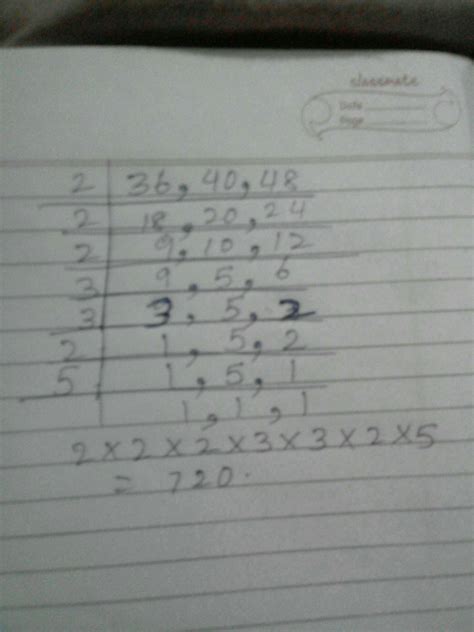 classmate
Date
Page
2 36, 40, 48
2 18, 20, 24
2 9, 10, 12
3 9, 5, 6
3 3, 5, 2
2 1, 5, 2
5 1, 5, 1
1, 1, 1
2×2×2×3×3×2×5
= 720.